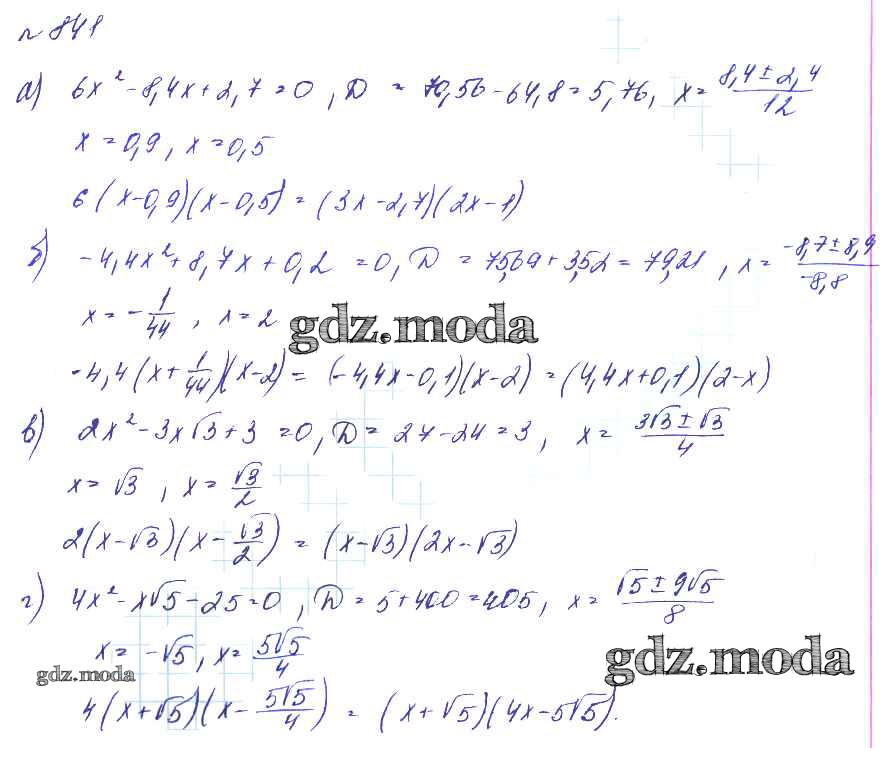 № 841
а) 6x² - 8,4x + 2,7 = 0, D = 70,56 - 64,8 = 5,76, x = (8,4 ± 2,4)/12
x = 0,9, x = 0,5
6(x-0,9)(x-0,5) = (3x-2,7)(2x-1)
б) -4,4x² + 8,7x + 0,2 = 0, D = 75,69 + 3,52 = 79,21, x = (-8,7 ± 8,9)/-8,8
x = -1/44, x = 2
-4,4(x + 1/44)(x-2) = (-4,4x-0,1)(x-2) = (4,4x+0,1)(2-x)
gdz.moda
в) 2x² - 3x√3 + 3 = 0, D = 27 - 24 = 3, x = (3√3 ± √3)/4
x = √3, x = √3/2
2(x-√3)(x - √3/2) = (x-√3)(2x-√3)
г) 4x² - x√5 - 25 = 0, D = 5 + 400 = 405, x = (√5 ± 9√5)/8
x = -√5, x = 5√5/4
gdz.moda
gdz.moda
4(x+√5)(x - 5√5/4) = (x+√5)(4x-5√5).